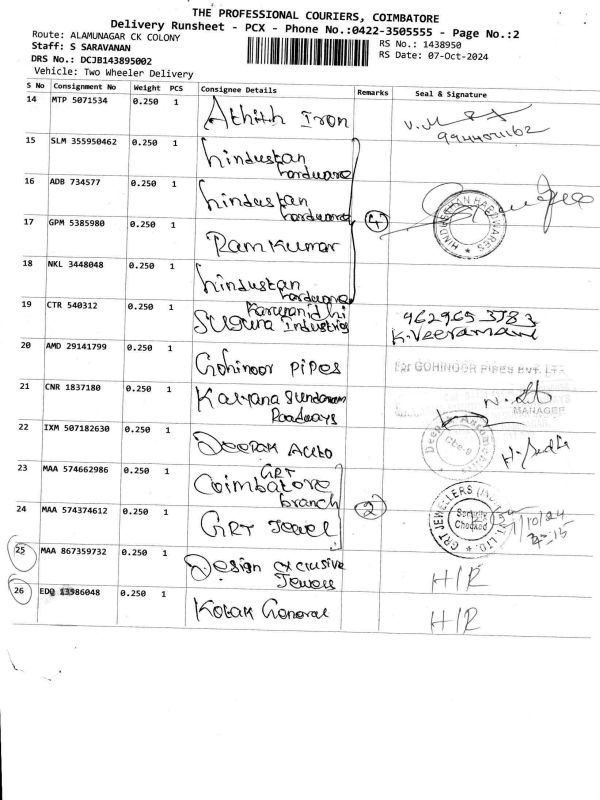 THE PROFESSIONAL COURIERS, COIMBATORE
Delivery Runsheet - PCX - Phone No.:0422-3505555 - Page No.:2
Route: ALAMUNAGAR CK COLONY
RS No.: 1438950
Staff: S SARAVANAN
RS Date: 07-Oct-2024
DRS No.: DCJB143895002
Vehicle: Two Wheeler Delivery
S No Consignment No Weight PCS Consignee Details Remarks Seal & Signature
14 MTP 5071534 0.250 1 Athith Iron
15 SLM 355950462 0.250 1 hindustan hardware
16 ADB 734577 0.250 1 hindustan hardware 4 HINDUSTAN HARDWARES
17 GPM 5385980 0.250 1 Ramkumar
18 NKL 3448048 0.250 1 hindustan hardware
19 CTR 540312 0.250 1 Karunanidhi Suguna Industries 9629653783
K.Veeramani
20 AMD 29141799 0.250 1 Gohinoor Pipes For GOHINOOR PIPES PVT. LTD
21 CNR 1837180 0.250 1 Kalyana Sundaram Roadways MANAGER
22 IXM 507182630 0.250 1 Deepak Auto
23 MAA 574662986 0.250 1 GRT Coimbatore branch
24 MAA 574374612 0.250 1 GRT Jewel 2 GRT JEWELLERS Security Checked
7/10/24
25 MAA 867359732 0.250 1 Design exclusive Jewels H/R
26 EDQ 13986048 0.250 1 Kotak General H/R